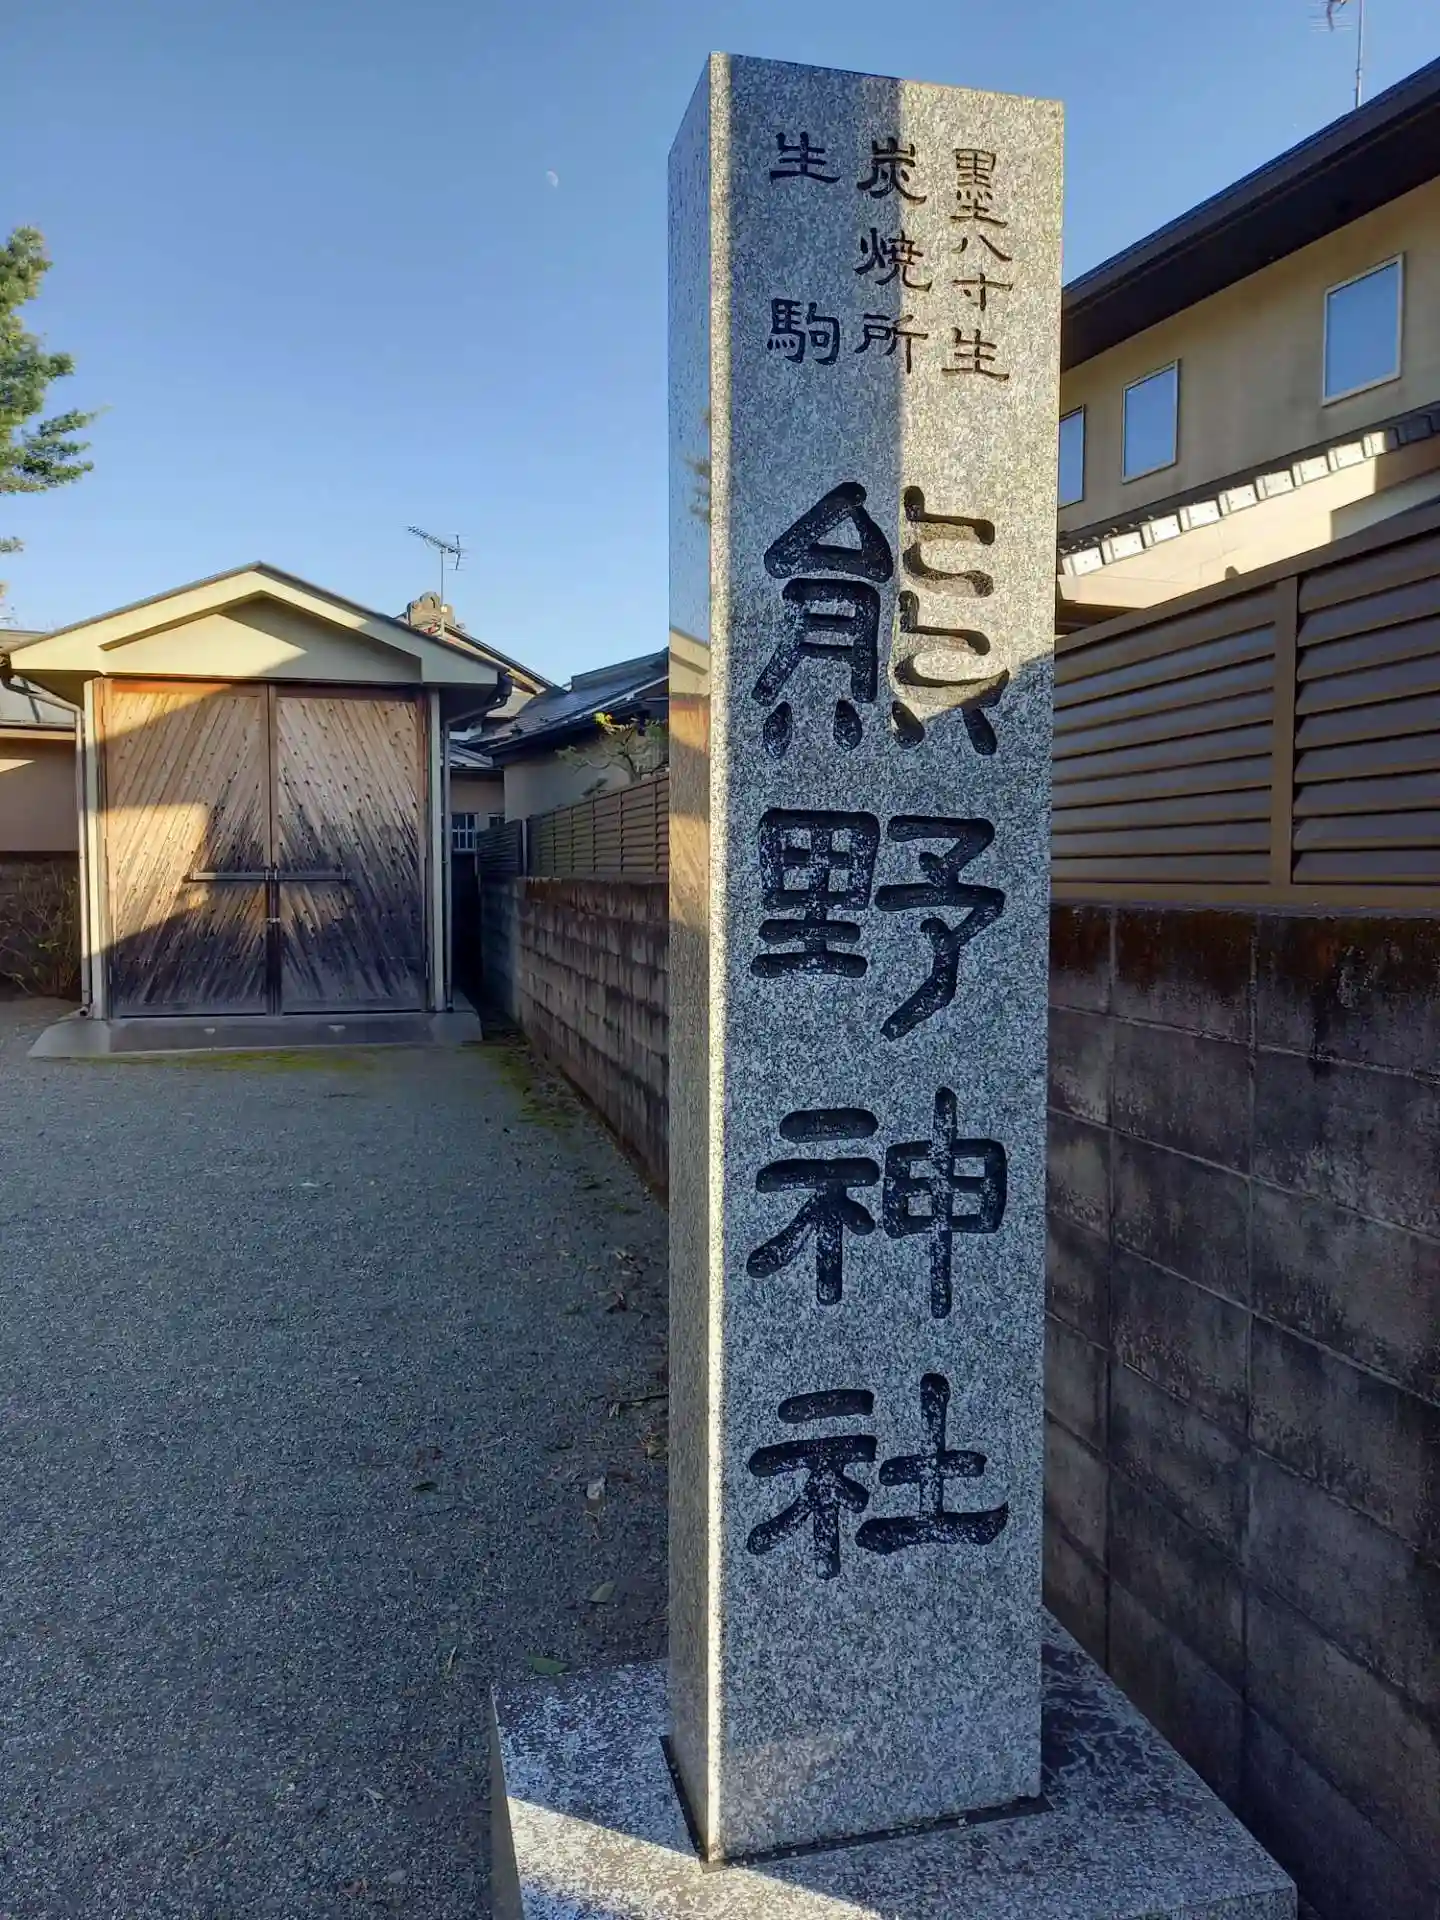 墨八寸生
炭焼所
生駒
熊野神社